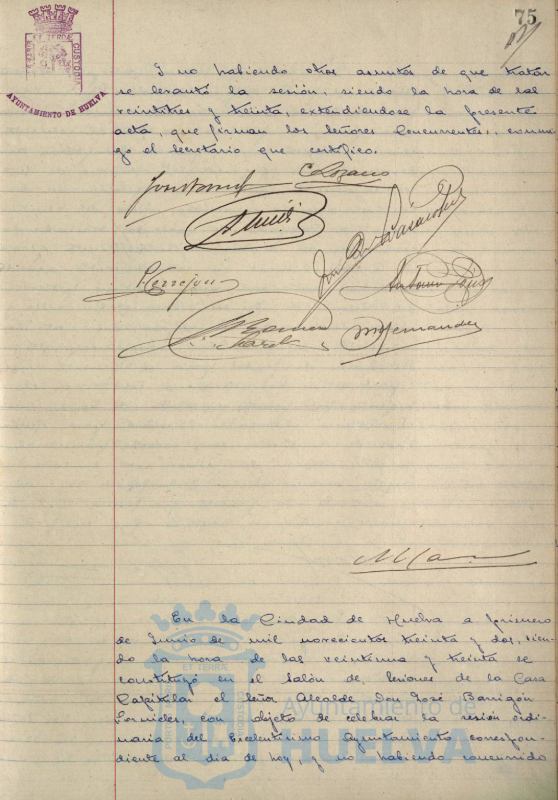 75
PORTUS MARIS ET TERRÆ CUSTODIA
AYUNTAMIENTO DE HUELVA
Y no habiendo otros asuntos de que tratar
se levantó la sesión, siendo la hora de las
veintitres y treinta, extendiendose la presente
acta, que firman los señores Concurrentes, conmi-
go el Secretario que certifico.
C Lozano
Antonio
M Hernandez
En la Ciudad de Huelva a primero
de Junio de mil novecientos treinta y dos, sien-
do la hora de las veintiuna y treinta se
constituyó en el salón de Sesiones de la Casa
Capitular el Señor Alcalde Don José Barrigón
Fornieles, con objeto de celebrar la sesión ordi-
naria del Excelentísimo Ayuntamiento correspon-
diente al dia de hoy, y no habiendo concurrido
Ayuntamiento de
HUELVA